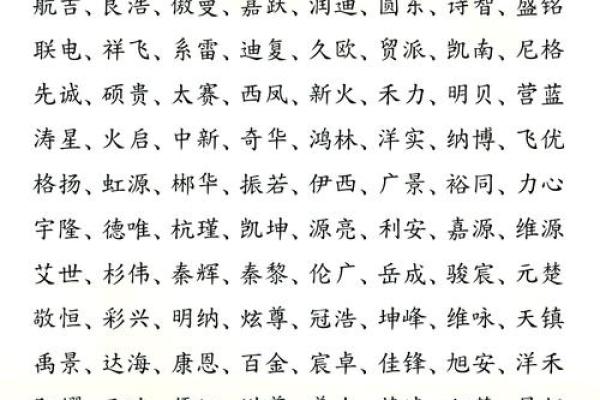 航吉、良浩、傲曼、嘉跃、润迪、圆东、诗智、盛铭
联电、祥飞、系雷、迪复、久欧、贸派、凯南、尼格
先诚、硕贵、太赛、西凤、新火、禾力、明贝、营蓝
涛星、火启、中新、奇华、鸿林、洋实、纳博、飞优
格扬、虹源、郴华、振若、伊西、广景、裕同、力心
宇隆、德唯、杭瑾、凯坤、源亮、利安、嘉源、维源
艾世、杉伟、秦辉、秦黎、伦广、岳成、骏宸、元楚
敬恒、彩兴、明纳、炫尊、冠浩、坤峰、维咏、天镇
禹景、达海、康恩、百金、宸卓、佳锋、旭安、洋禾